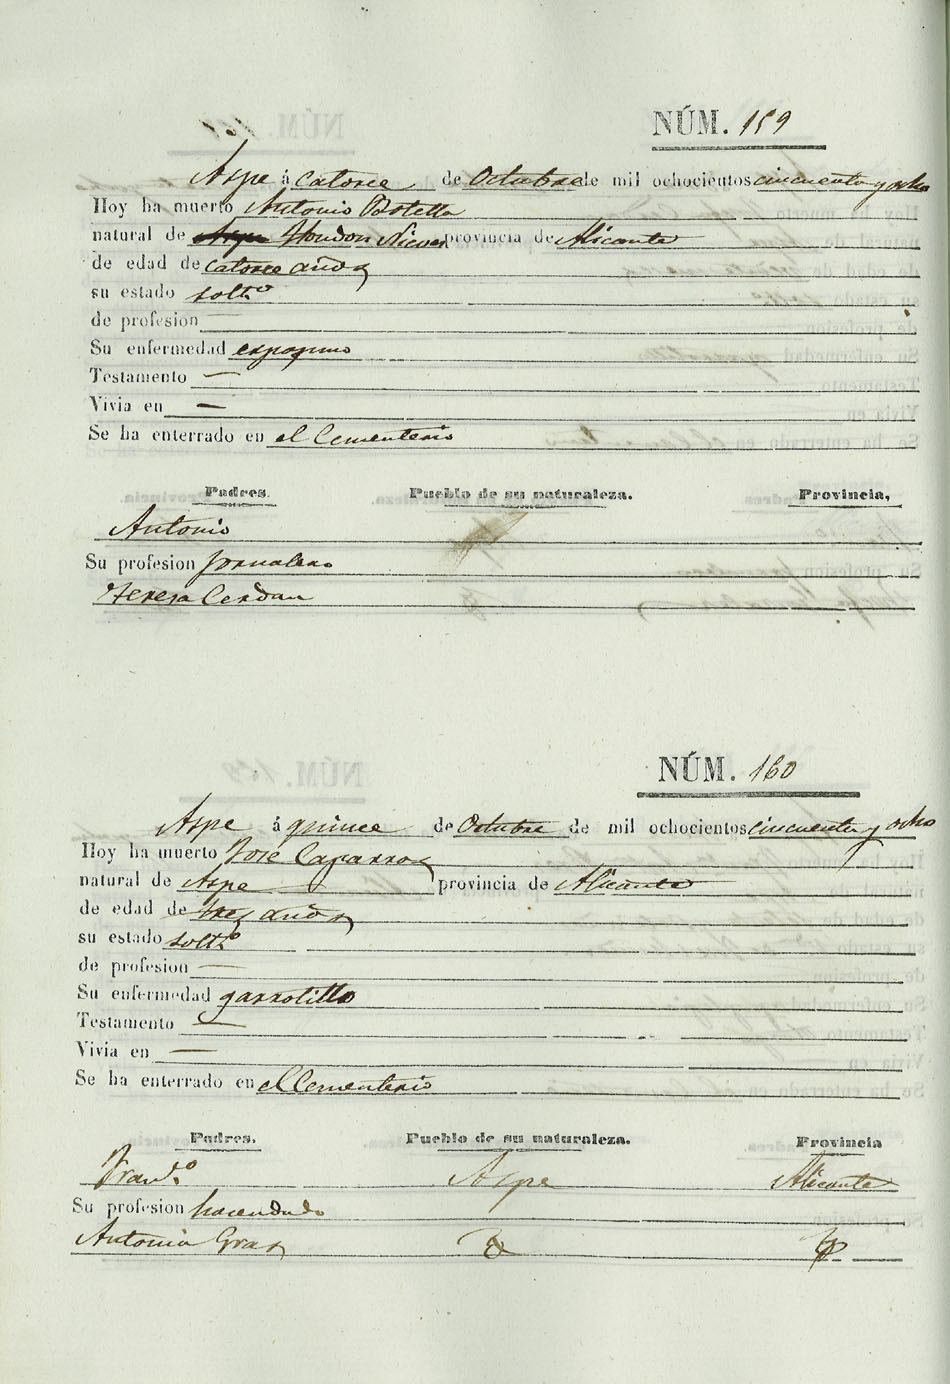 NÚM. 159
Aspe á Catorce de Octubre de mil ochocientos cincuenta y ocho
Hoy ha muerto Antonio Botella
natural de Hondon provincia de Alicante
de edad de catorce años
su estado solt.º
de profesion —
Su enfermedad
Testamento —
Vivia en —
Se ha enterrado en el Cementerio
Padres. Pueblo de su naturaleza. Provincia,
Antonio
Su profesion Jornalero
Teresa Cerdan
NÚM. 160
Aspe á quince de Octubre de mil ochocientos cincuenta y ocho
Hoy ha muerto Jose Caparros
natural de Aspe provincia de Alicante
de edad de tres años
su estado solt.º
de profesion —
Su enfermedad garrotillo
Testamento —
Vivia en —
Se ha enterrado en el Cementerio
Padres. Pueblo de su naturaleza. Provincia
Franc.º Aspe Alicante
Su profesion hacendado
Antonia Gras